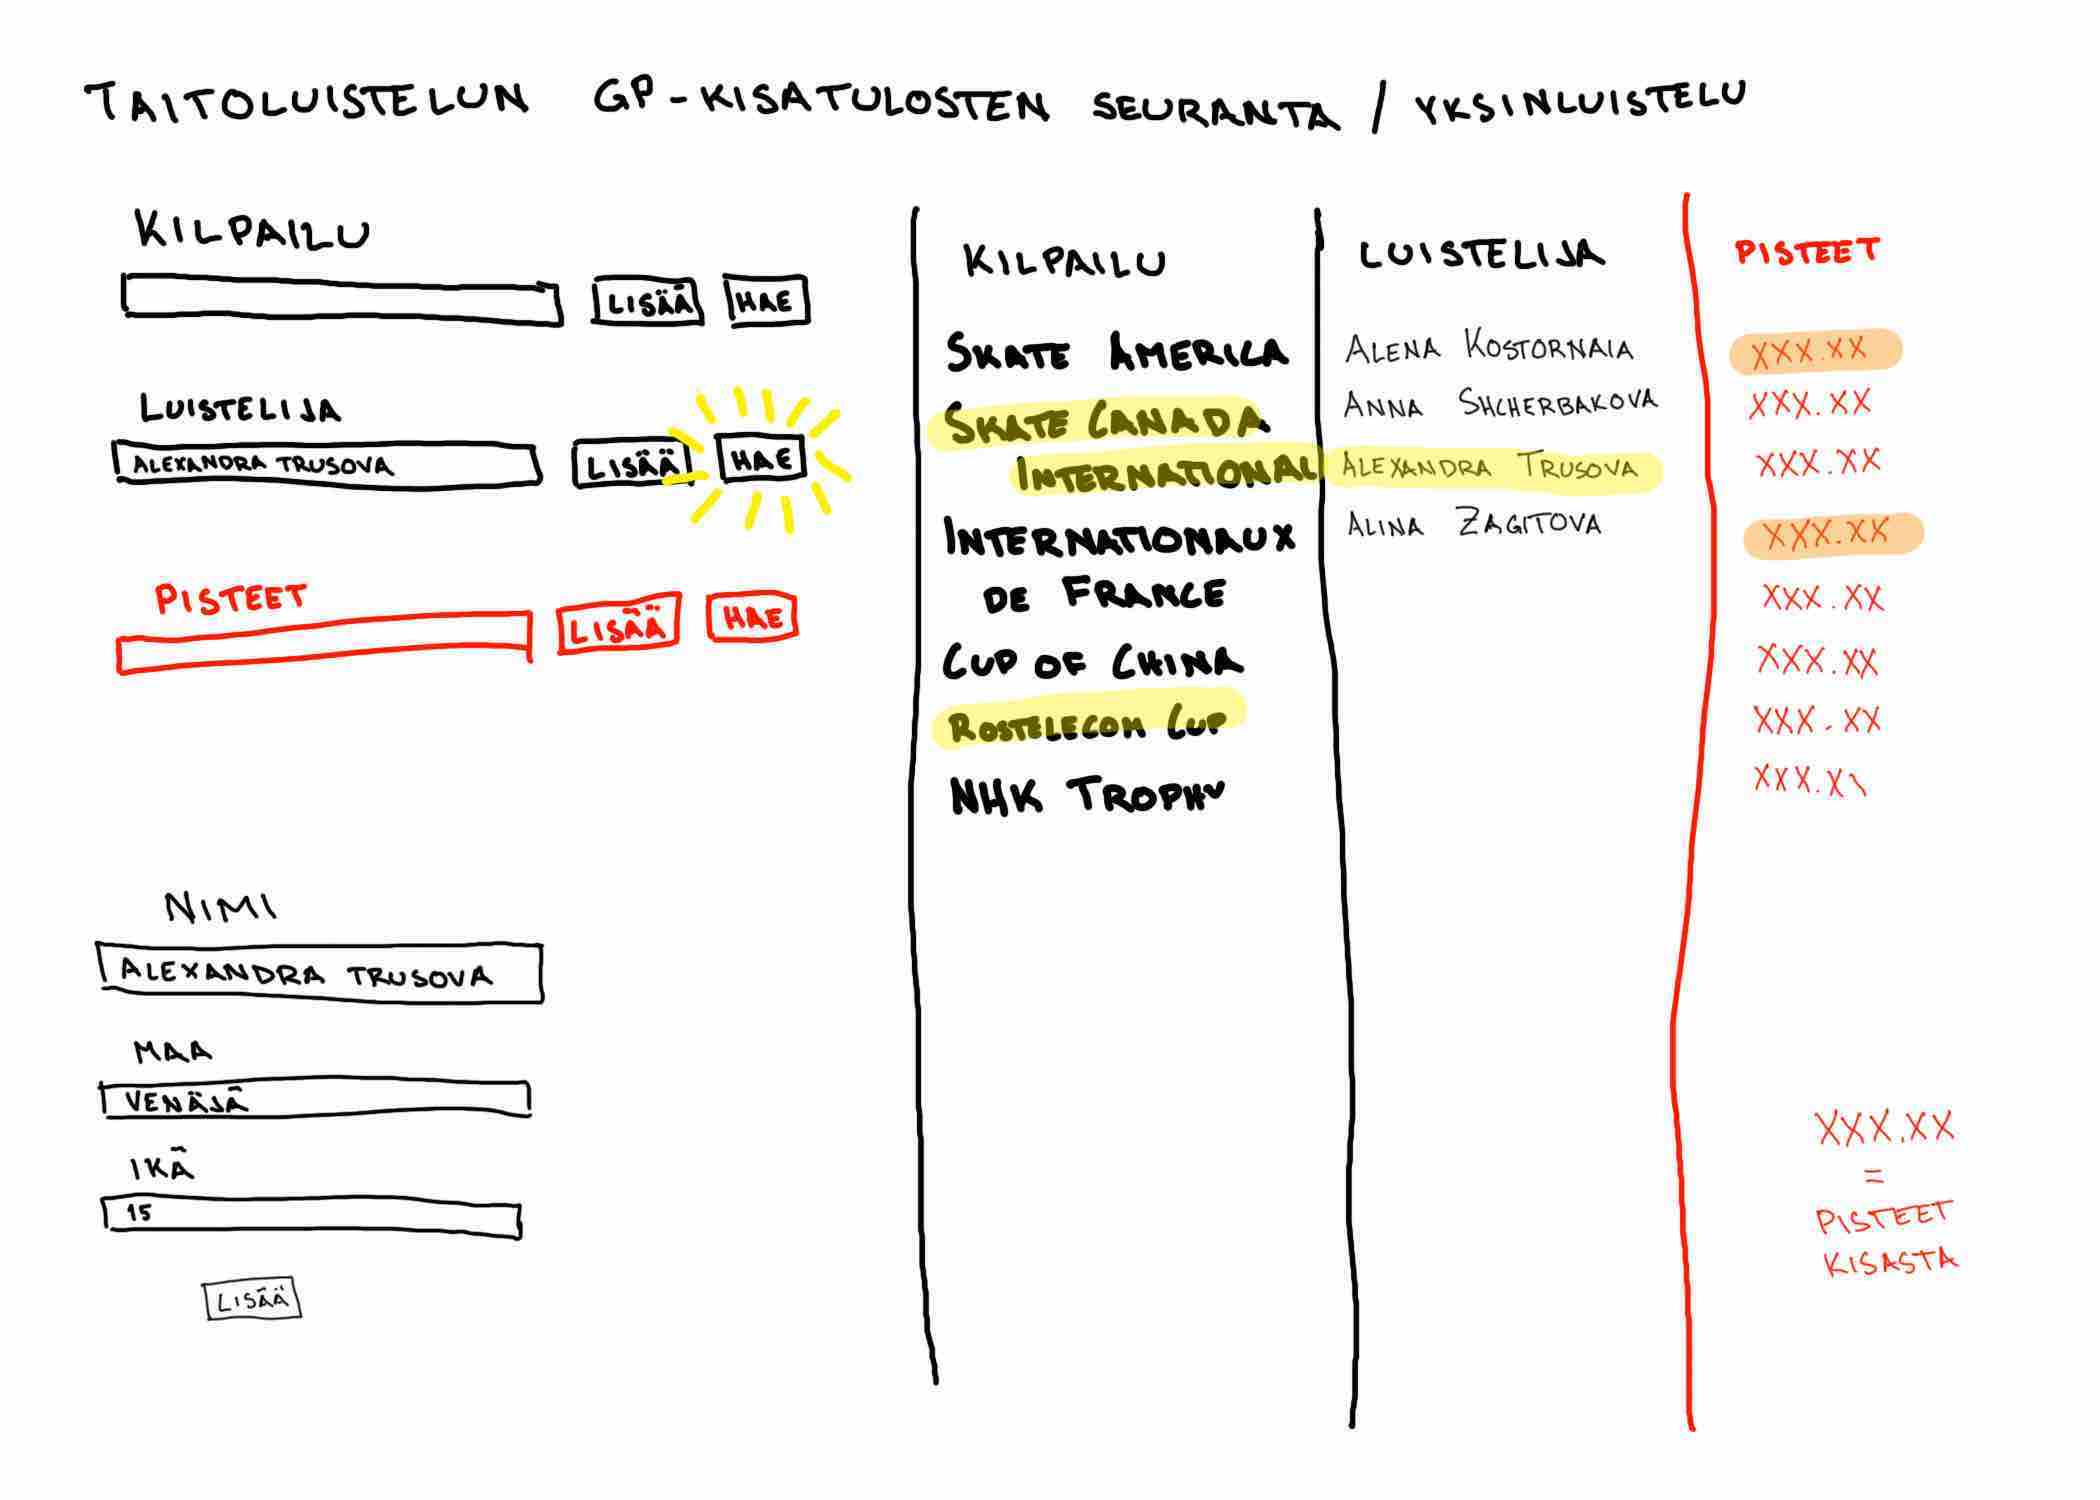 TAITOLUISTELUN GP-KISATULOSTEN SEURANTA / YKSINLUISTELU
KILPAILU
LISÄÄ
HAE
LUISTELIJA
ALEXANDRA TRUSOVA
LISÄÄ
HAE
PISTEET
LISÄÄ
HAE
NIMI
ALEXANDRA TRUSOVA
MAA
VENÄJÄ
IKÄ
15
LISÄÄ
KILPAILU
SKATE AMERICA
SKATE CANADA
INTERNATIONAL
INTERNATIONAUX
DE FRANCE
CUP OF CHINA
ROSTELECOM CUP
NHK TROPHY
LUISTELIJA
ALENA KOSTORNAIA
ANNA SHCHERBAKOVA
ALEXANDRA TRUSOVA
ALINA ZAGITOVA
PISTEET
XXX.XX
XXX.XX
XXX.XX
XXX.XX
XXX.XX
XXX.XX
XXX.XX
XXX.XX
XXX.XX
=
PISTEET
KISASTA